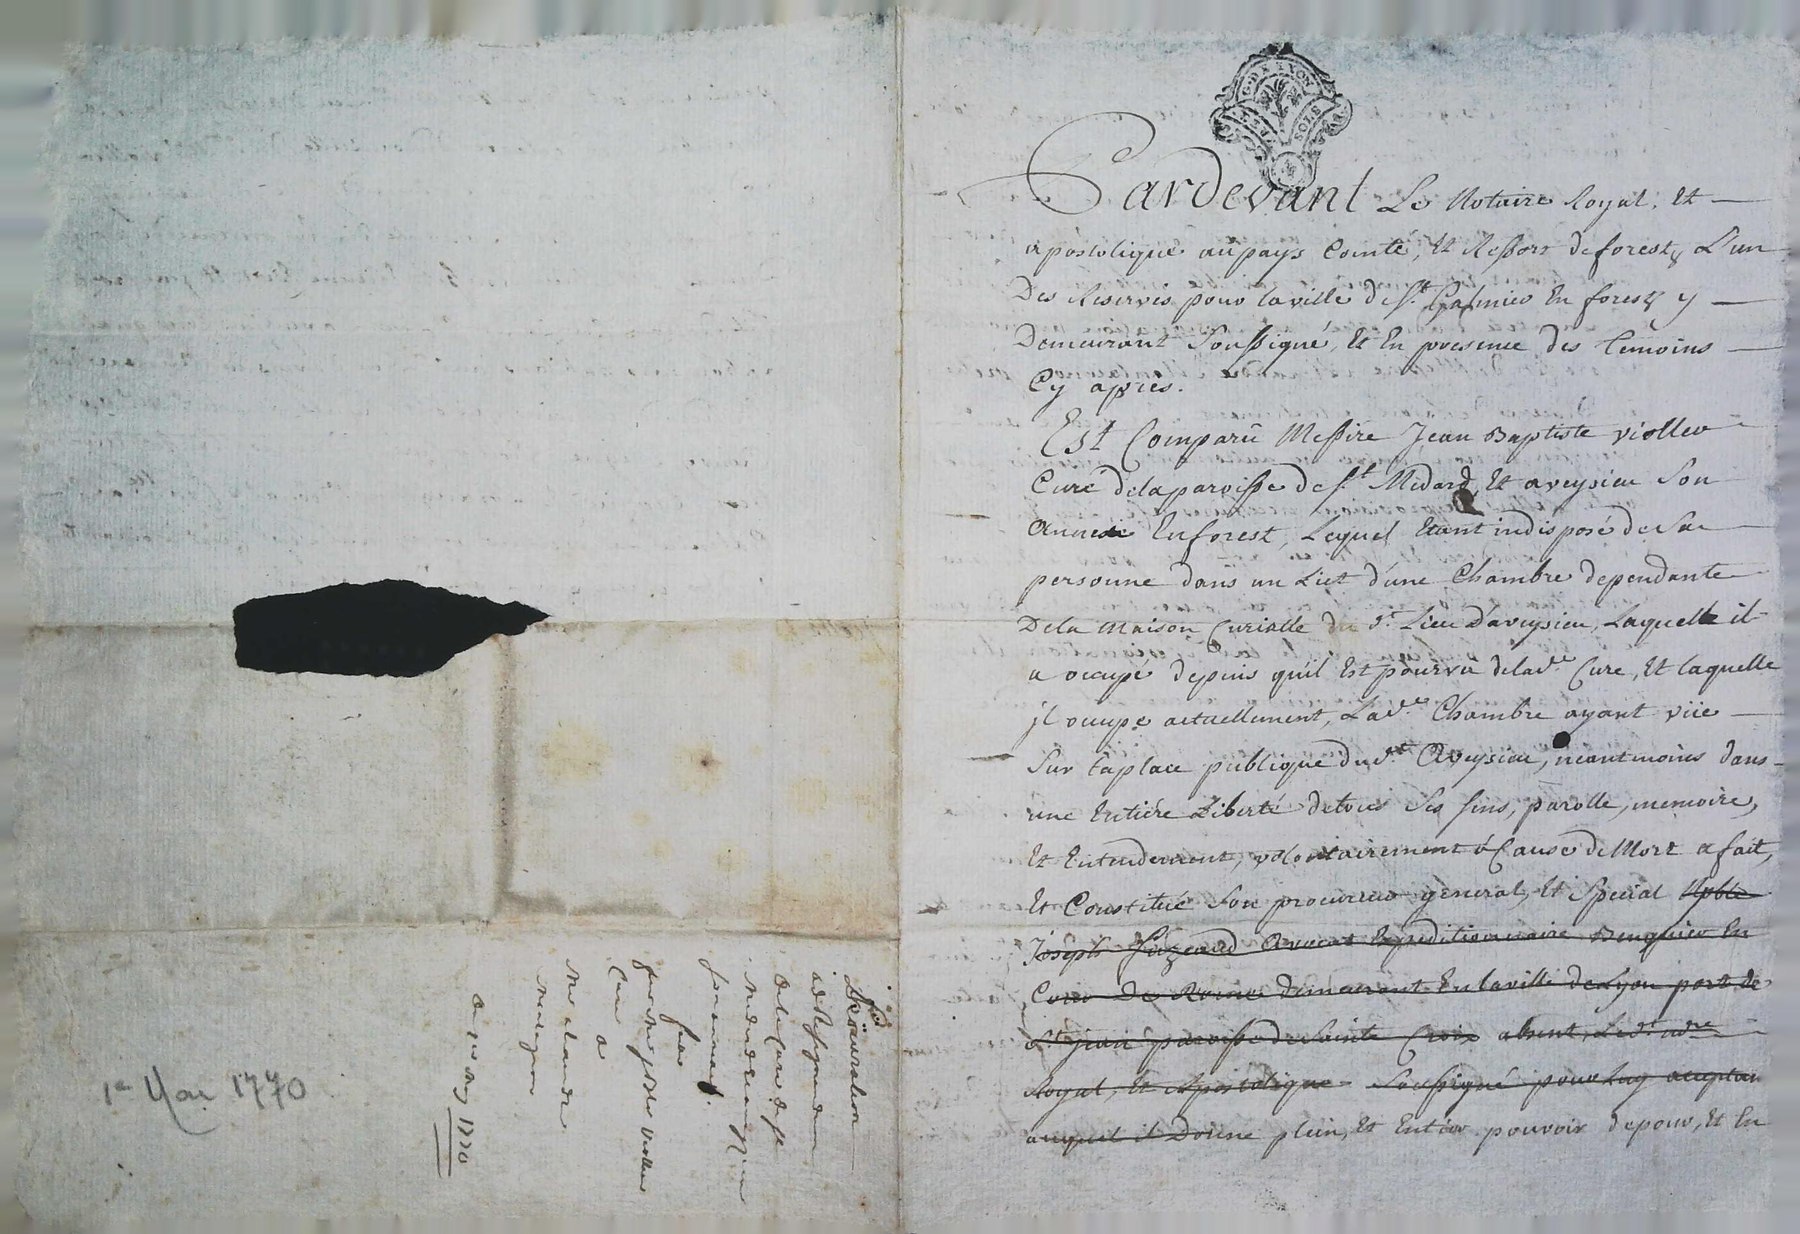 G. DE LYON
SOLS
Pardevant Le Notaire Royal, Et
apostolique au pays Comté, Et Ressort de forestz L'un
Des Reservés pour la ville de St. Galmier En forestz y
Demeurant Soussigné, Et En presence des temoins
Cy apres.
Est Comparû Messire Jean Baptiste viollev
Curé de la paroisse de St Medard, Et aveysieu Son
Annexe En forest, Lequel Etant indisposé de Sa
personne dans un Lict d'une Chambre dependante
De la Maison Curialle du dt. Lieu D'aveysieu, Laquelle il
a occupé depuis quil Est pourvû de lade. Cure, Et laquelle
jl occupe actuellement, Lade. Chambre ayant vüe
Sur la place publique dudt. Aveysieu, neantmoins dans
une Entiére Liberté de tous Ses sens, parolle, memoire,
Et Entendement, volontairement à Cause de Mort a fait,
Et Constitué Son procureur general, Et Special Noble
Joseph Avocat Expeditionnaire Banquier En
Cour De Rome demeurant En la ville de Lyon port de
St jean paroisse de Sainte Croix absent, Ledt. nore
Royal, Et Apostolique Soussigné pour Luy acceptan
auquel il Donne plein, Et Entier pouvoir de pour, Et En
Procuration
ad Resignandum
De la Cure de St
Medard
par
Cure
a
1770
1er Mai 1770